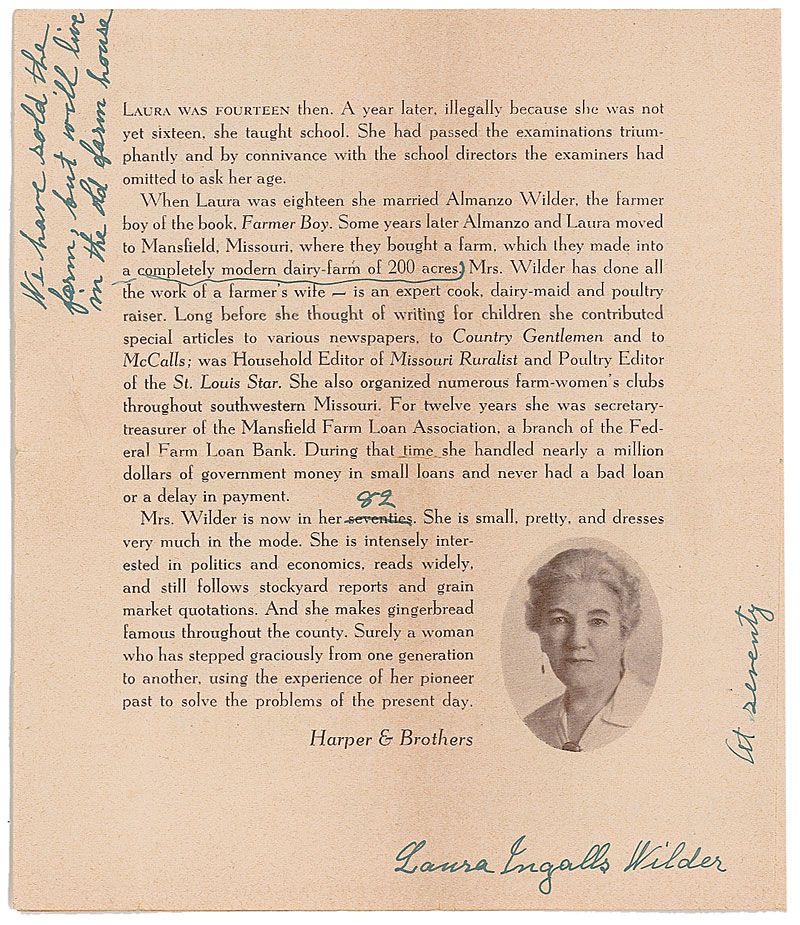 We have sold the
farm, but will live
in the old farm house
LAURA WAS FOURTEEN then. A year later, illegally because she was not
yet sixteen, she taught school. She had passed the examinations trium-
phantly and by connivance with the school directors the examiners had
omitted to ask her age.
When Laura was eighteen she married Almanzo Wilder, the farmer
boy of the book, Farmer Boy. Some years later Almanzo and Laura moved
to Mansfield, Missouri, where they bought a farm, which they made into
a completely modern dairy-farm of 200 acres. Mrs. Wilder has done all
the work of a farmer's wife — is an expert cook, dairy-maid and poultry
raiser. Long before she thought of writing for children she contributed
special articles to various newspapers, to Country Gentlemen and to
McCalls; was Household Editor of Missouri Ruralist and Poultry Editor
of the St. Louis Star. She also organized numerous farm-women's clubs
throughout southwestern Missouri. For twelve years she was secretary-
treasurer of the Mansfield Farm Loan Association, a branch of the Fed-
eral Farm Loan Bank. During that time she handled nearly a million
dollars of government money in small loans and never had a bad loan
or a delay in payment.
82
Mrs. Wilder is now in her seventies. She is small, pretty, and dresses
very much in the mode. She is intensely inter-
ested in politics and economics, reads widely,
and still follows stockyard reports and grain
market quotations. And she makes gingerbread
famous throughout the county. Surely a woman
who has stepped graciously from one generation
to another, using the experience of her pioneer
past to solve the problems of the present day.
Harper & Brothers
At seventy
Laura Ingalls Wilder